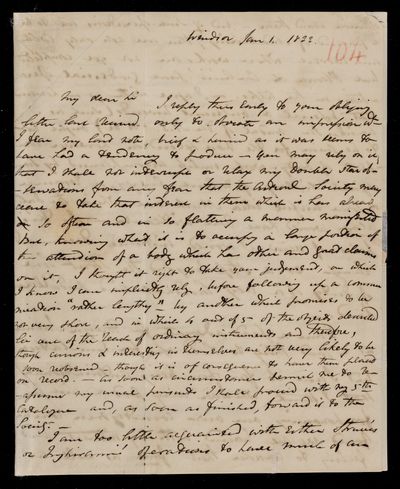 Windsor Jan 1. 1832
104
My dear Sir I reply thus early to your obliging
letter last received only to obviate an impression wh
I fear my last note, brief & hurried as it was seems to
have had a tendency to produce — You may rely on it
that I shall not interrupt or relax my Double Star ob-
-servations from any fear that the Astronl Society may
cease to take that interest in them which it has already
so often and in so flattering a manner manifested
But, knowing what it is to occupy a large portion of
the attention of a body which has other and great claims
on it, I thought it right to take your judgement, on which
I know I can implicitly rely, before following up a commu-
-nication "rather lengthy" by another which promises to be
not very short, and in which 4 out of 5 of the objects described
lie out of the reach of ordinary instruments and therefore,
though curious & interesting in themselves are not very likely to be
soon reobserved — though it is of consequence to have them placed
on record. — As soon as circumstances permit me to re-
-assume my usual pursuits I shall proceed with my 5th
Catalogue and, as soon as finished, forward it to the
Society. —
I am too little acquainted with either Struve's
or operations to have much of an